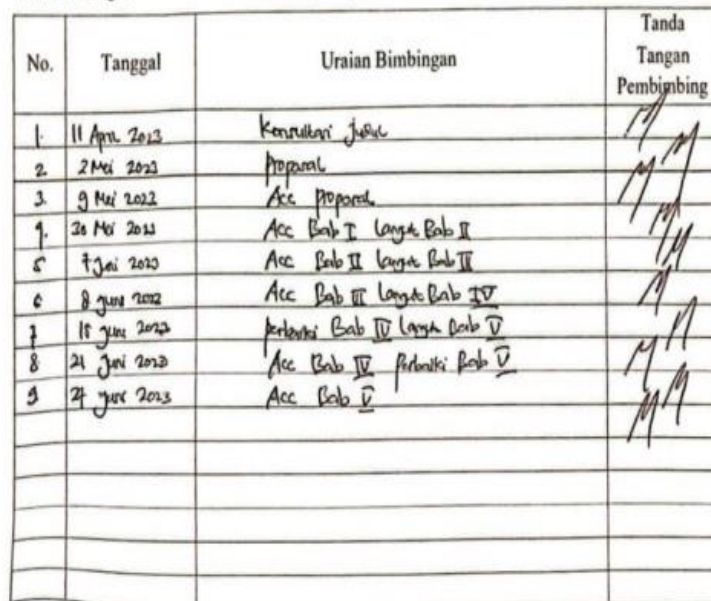 No. Tanggal Uraian Bimbingan Tanda Tangan Pembimbing
1. 11 April 2023 Konsultasi Judul
2. 2 Mei 2023 Proposal
3. 9 Mei 2023 Acc Proposal
4. 30 Mei 2023 Acc Bab I Lanjut Bab II
5 7 Juni 2023 Acc Bab II Lanjut Bab III
6 8 Juni 2023 Acc Bab III Lanjut Bab IV
7 15 Juni 2023 Perbaiki Bab IV Lanjut Bab V
8 21 Juni 2023 Acc Bab IV Perbaiki Bab V
9 Juni 2023 Acc Bab V